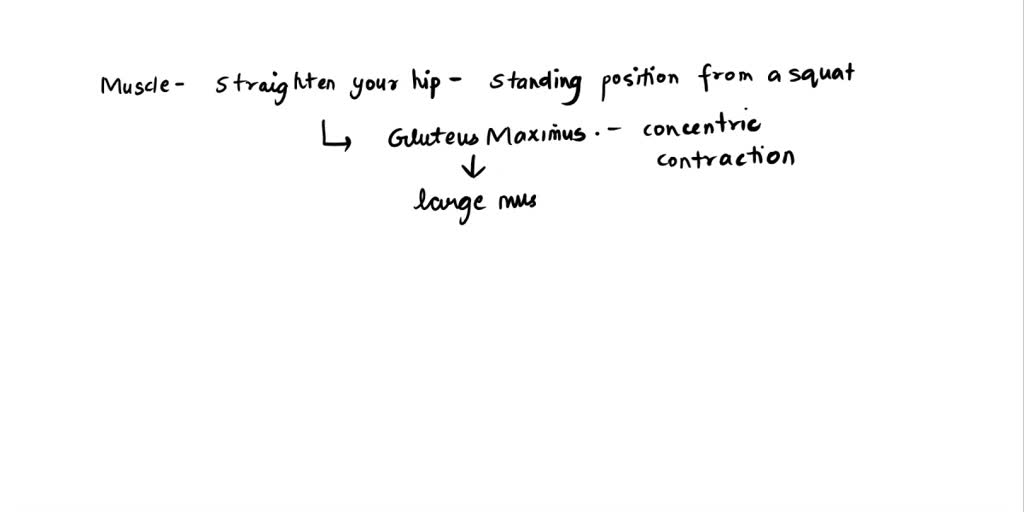 Muscle - straighten your hip - standing position from a squat
↳ Gluteus Maximus. - concentric
contraction
↓
large mus